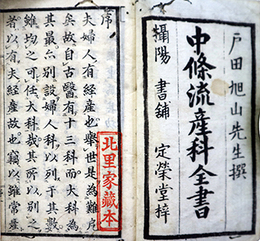 戸田旭山先生撰
中條流産科全書
攝陽 書舗 定榮堂梓
序
夫婦人有経産也舉世是為難
矣故自古醫有十三科而大科為
其最別設婦人科以列于其
雖均之可任大科哉其所以別之
者以有夫經産故也竊以雖嘗産
北里家藏本